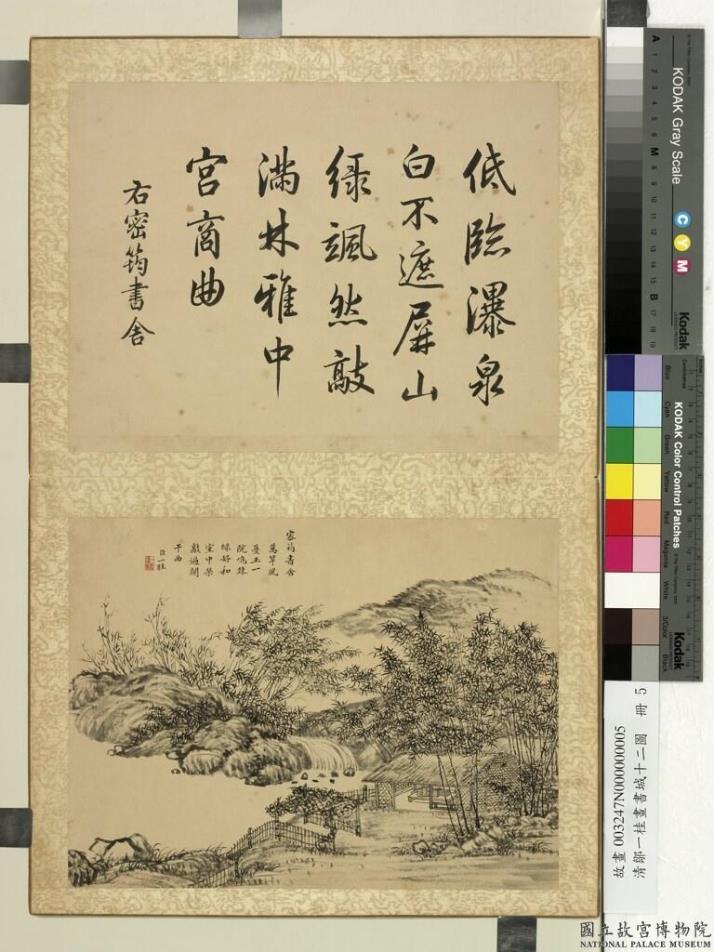 低臨瀑泉
白不遮屏山
綠颯然敲
滿林雅中
宮商曲
右密筠書舍
密筠書舍
萬竿風
戞玉一
綠好和
室中琴
臣一桂
KODAK Gray Scale
C Y M
Kodak
A 1 2 3 4 5 6 M 8 9 10 11 12 13 14 15 B 17 18 19
KODAK Color Control Patches
Blue Cyan Green Yellow Red Magenta White 3/Color Black
Kodak
故畫 003247N000000005
清鄒一桂畫書城十二圖 冊 5
國立故宮博物院
NATIONAL PALACE MUSEUM